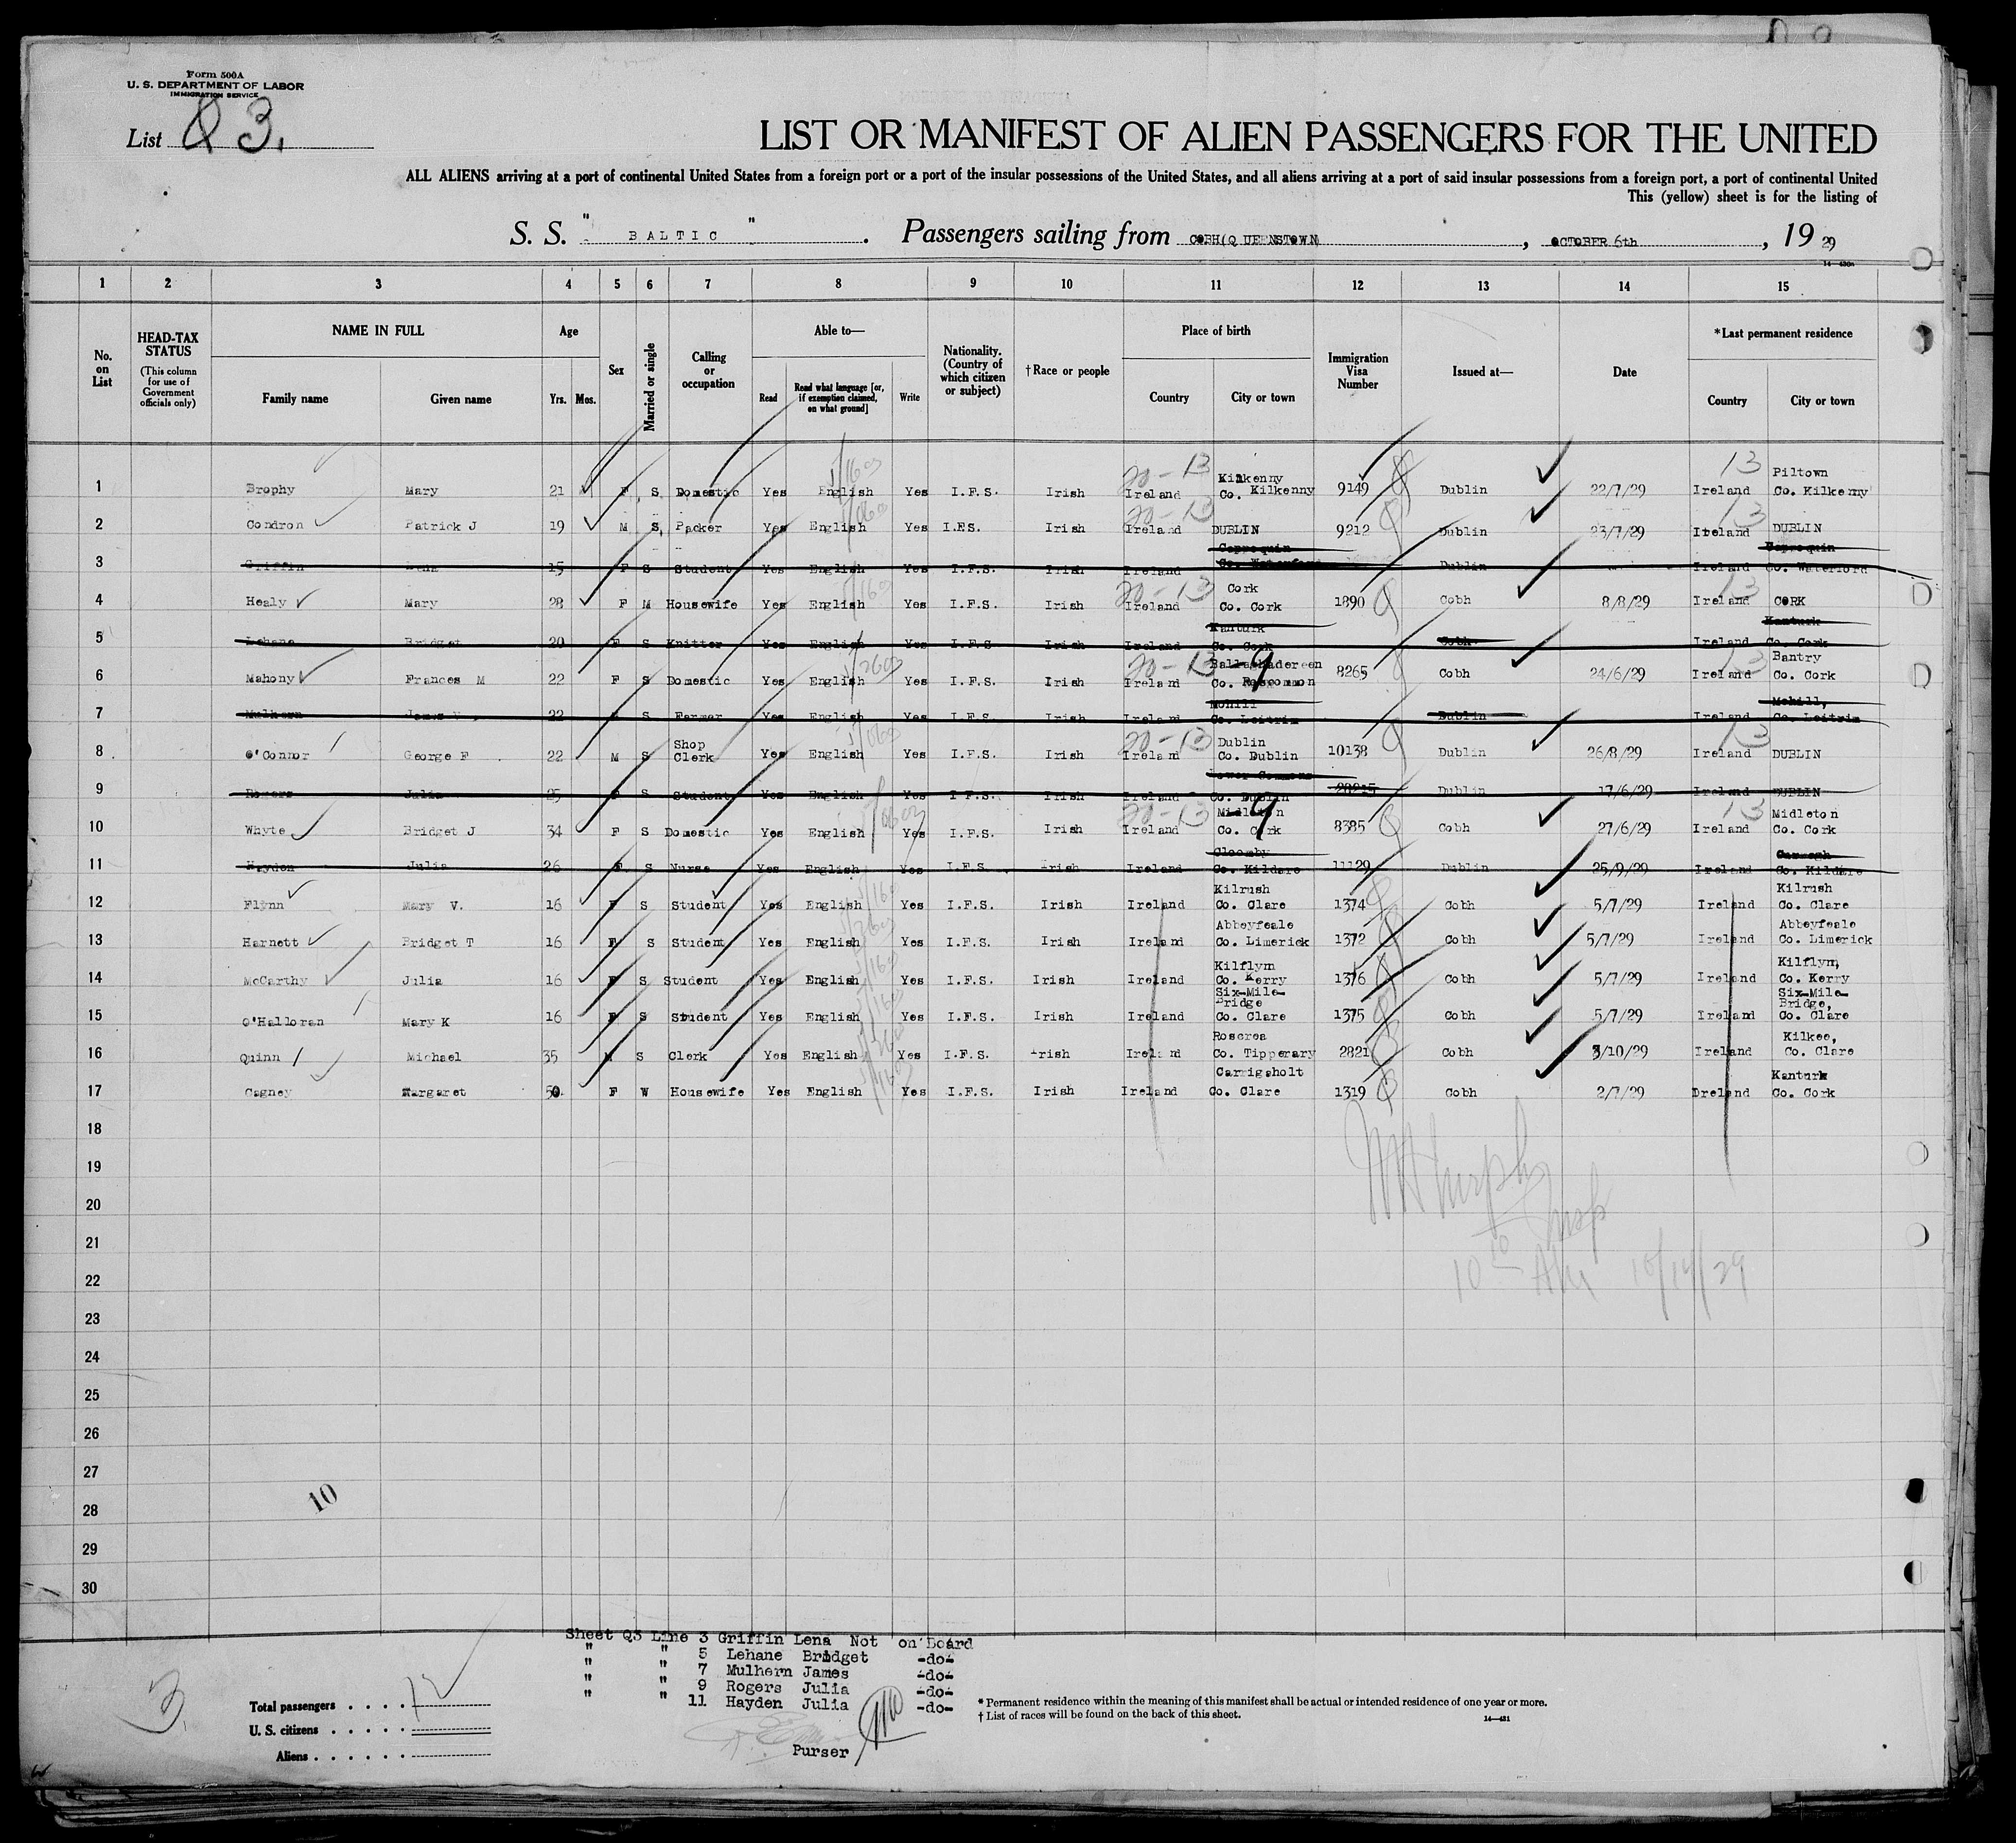 Form 500A
U. S. DEPARTMENT OF LABOR
IMMIGRATION SERVICE
List Q 3.
LIST OR MANIFEST OF ALIEN PASSENGERS FOR THE UNITED
ALL ALIENS arriving at a port of continental United States from a foreign port or a port of the insular possessions of the United States, and all aliens arriving at a port of said insular possessions from a foreign port, a port of continental United
This (yellow) sheet is for the listing of
S. S. " BALTIC " . Passengers sailing from COBH(QUEENSTOWN) , OCTOBER 6th , 19 29
1 2 3 4 5 6 7 8 9 10 11 12 13 14 15
No. on List
HEAD-TAX STATUS
(This column for use of Government officials only)
NAME IN FULL
Family name Given name
Age
Yrs. Mos.
Sex
Married or single
Calling or occupation
Able to—
Read
Read what language [or, if exemption claimed, on what ground]
Write
Nationality. (Country of which citizen or subject)
†Race or people
Place of birth
Country City or town
Immigration Visa Number
Issued at—
Date
*Last permanent residence
Country City or town
1 Brophy Mary 21 F S Domestic Yes English Yes I.F.S. Irish Ireland Kilkenny Co. Kilkenny 9149 Dublin 22/7/29 Ireland Piltown Co. Kilkenny
2 Condron Patrick J 19 M S Packer Yes English Yes I.F.S. Irish Ireland DUBLIN 9212 Dublin 23/7/29 Ireland DUBLIN
3 Griffin Lena 15 F S Student Yes English Yes I.F.S. Irish Ireland Cappoquin Co. Waterford Dublin Ireland Cappoquin Co. Waterford
4 Healy Mary 28 F M Housewife Yes English Yes I.F.S. Irish Ireland Cork Co. Cork 1890 Cobh 8/8/29 Ireland CORK
5 Lehane Bridget 20 F S Knitter Yes English Yes I.F.S Irish Ireland Kanturk Co. Cork Cobh Ireland Kanturk Co. Cork
6 Mahony Frances M 22 F S Domestic Yes English Yes I.F.S. Irish Ireland Ballaghadereen Co. Roscommon 8265 Cobh 24/6/29 Ireland Bantry Co. Cork
7 Mulhern James 22 S Farmer Yes English Yes I.F.S. Irish Ireland Mohill Co. Leitrim Dublin Ireland Mohill, Co. Leitrim
8 O'Connor George F 22 M S Shop Clerk Yes English Yes I.F.S. Irish Ireland Dublin Co. Dublin 10138 Dublin 26/8/29 Ireland DUBLIN
9 Rogers Julia 25 F S Student Yes English Yes I.F.S. Irish Ireland Co. Dublin Dublin 17/6/29 Ireland DUBLIN
10 Whyte Bridget J 34 F S Domestic Yes English Yes I.F.S. Irish Ireland Midleton Co. Cork 8385 Cobh 27/6/29 Ireland Midleton Co. Cork
11 Hayden Julia 26 F S Nurse Yes English Yes I.F.S. Irish Ireland Co. Kildare 11129 Dublin 25/9/29 Ireland Co. Kildare
12 Flynn Mary V. 16 F S Student Yes English Yes I.F.S. Irish Ireland Kilrush Co. Clare 1374 Cobh 5/7/29 Ireland Kilrush Co. Clare
13 Harnett Bridget T 16 F S Student Yes English Yes I.F.S. Irish Ireland Abbeyfeale Co. Limerick 1372 Cobh 5/7/29 Ireland Abbeyfeale Co. Limerick
14 McCarthy Julia 16 F S Student Yes English Yes I.F.S. Irish Ireland Kilflym Co. Kerry 1376 Cobh 5/7/29 Ireland Kilflym, Co. Kerry
15 O'Halloran Mary K 16 F S Student Yes English Yes I.F.S. Irish Ireland Six-Mile-Bridge Co. Clare 1375 Cobh 5/7/29 Ireland Six-Mile-Bridge, Co. Clare
16 Quinn Michael 35 M S Clerk Yes English Yes I.F.S. Irish Ireland Roscrea Co. Tipperary 2821 Cobh 3/10/29 Ireland Kilkee, Co. Clare
17 Cagney Margaret 50 F W Housewife Yes English Yes I.F.S. Irish Ireland Carrigaholt Co. Clare 1319 Cobh 2/7/29 Dreland Kanturk Co. Cork
18
19
20
21
22
23
24
25
26
27
28
29
30
10
10/14/29
Sheet Q3 Line 3 Griffin Lena Not on Board
" " 5 Lehane Bridget -do-
" " 7 Mulhern James -do-
" " 9 Rogers Julia -do-
" " 11 Hayden Julia -do-
Purser
3
Total passengers . . . . 12
U. S. citizens . . . . .
Aliens . . . . . .
* Permanent residence within the meaning of this manifest shall be actual or intended residence of one year or more.
† List of races will be found on the back of this sheet.
14—421